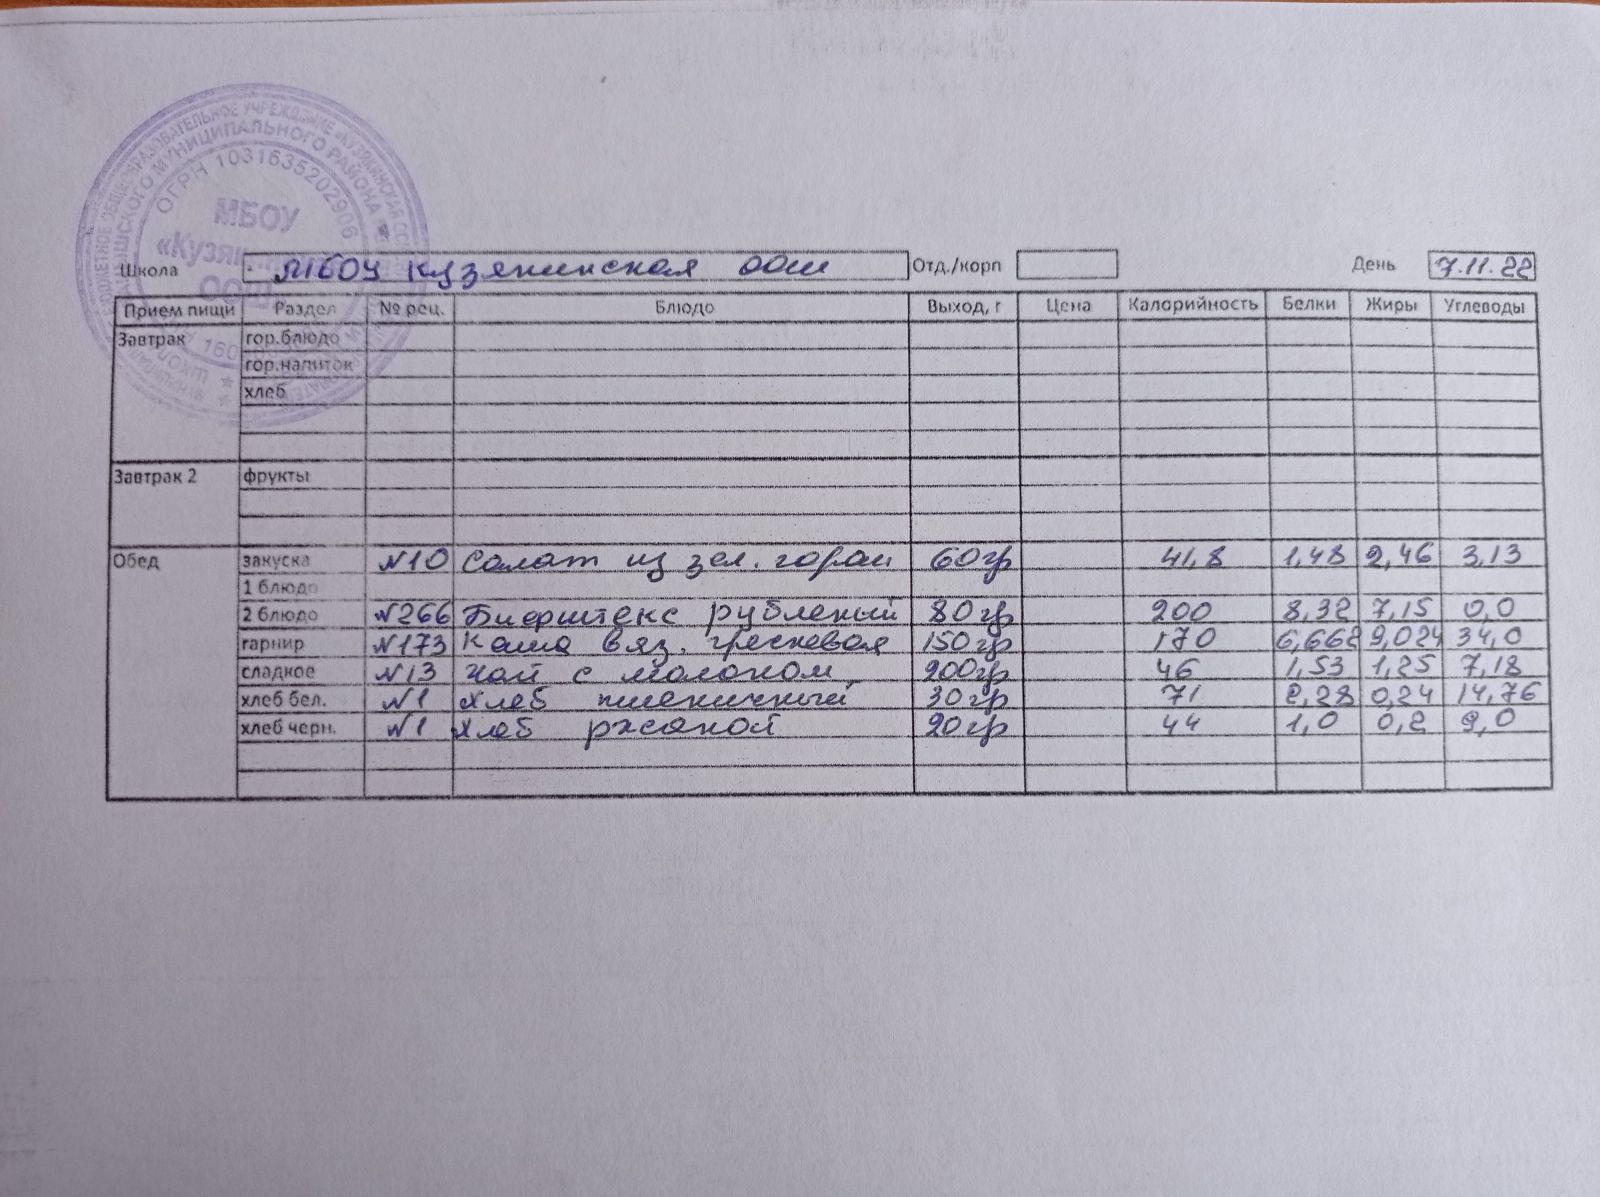 БЮДЖЕТНОЕ ОБЩЕОБРАЗОВАТЕЛЬНОЕ УЧРЕЖДЕНИЕ «КУЗЯКИНСКАЯ
МУНИЦИПАЛЬНОГО РАЙОНА
ОГРН 1031635202906
МБОУ
ООШ
Школа МБОУ Кузякинская ООШ Отд./корп День 7.11.22
Прием пищи Раздел № рец. Блюдо Выход, г Цена Калорийность Белки Жиры Углеводы
Завтрак гор.блюдо
гор.напиток
хлеб
Завтрак 2 фрукты
Обед закуска №10 Салат из зел. горош 60гр 41,8 1,48 2,46 3,13
1 блюдо
2 блюдо №266 Бифштекс рубленый 80гр 200 8,32 7,15 0,0
гарнир №173 Каша вяз. гречневая 150гр 170 6,662 9,024 34,0
сладкое №13 чай с молоком 200гр 46 1,53 1,25 7,18
хлеб бел. №1 Хлеб пшеничный 30гр 71 2,28 0,24 14,76
хлеб черн. №1 Хлеб ржаной 20гр 44 1,0 0,2 9,0